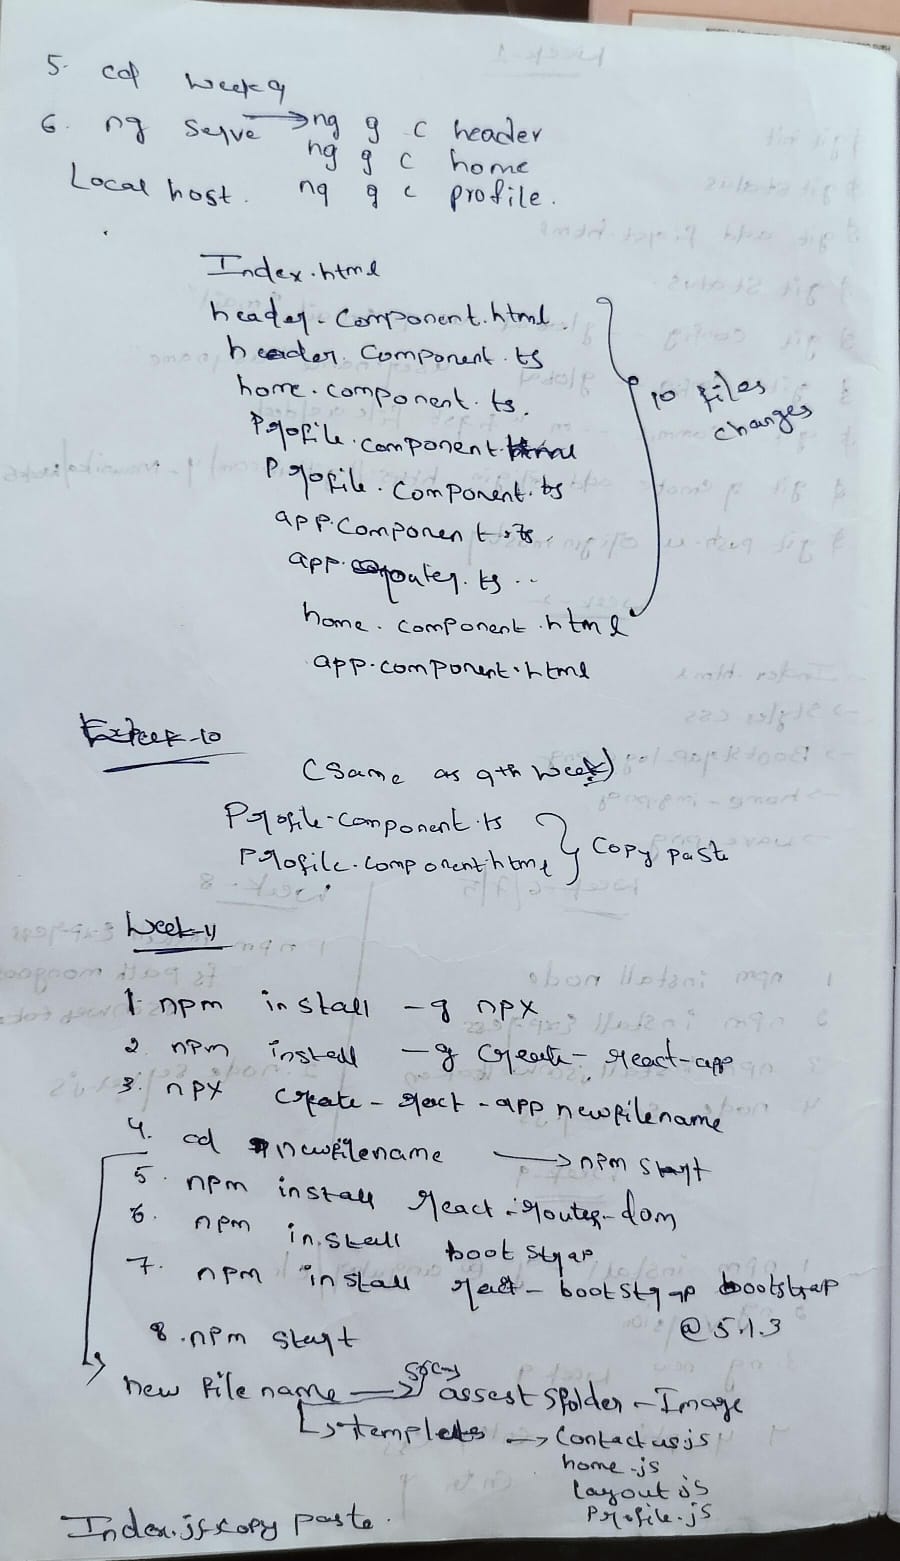 5. cd week9
6. ng serve → ng g c header
ng g c home
Local host. ng g c profile.
Index.html
header.component.html
header.component.ts
home.component.ts.
Profile.component.html
Profile.component.ts
app.component.ts.
app.router.ts..
home.component.html
10 files
changes
app.component.html
week-10
(Same as 9th week)
Profile-component.ts
Profile.component.html
} copy paste
Week-11
1. npm install -g npx
2. npm install -g create-react-app
3. npx create-react-app newfilename
4. cd newfilename → npm start
5. npm install react-router-dom
6. npm install bootstrap
7. npm install react-bootstrap bootstrap
@5.1.3
8. npm start
new file name → assest sfolder - Image
↳ templets → Contactus.js
home.js
layout.js
Profile.js
Index.js copy paste.